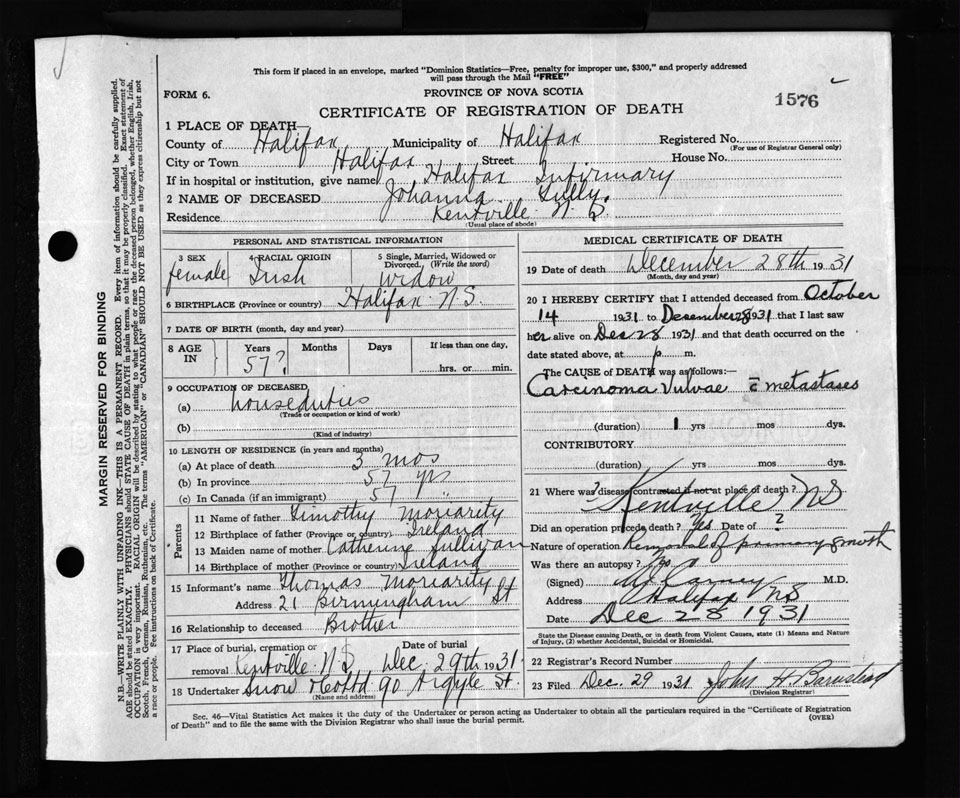 This form if placed in an envelope, marked "Dominion Statistics—Free, penalty for improper use, $300," and properly addressed
will pass through the Mail "FREE"
FORM 6.
PROVINCE OF NOVA SCOTIA
CERTIFICATE OF REGISTRATION OF DEATH
1576
1 PLACE OF DEATH—
County of Halifax Municipality of Halifax Registered No.
(For use of Registrar General only)
City or Town Halifax Street House No.
If in hospital or institution, give name Halifax Infirmary
2 NAME OF DECEASED Johanna
Residence Kentville N.S.
(Usual place of abode)
PERSONAL AND STATISTICAL INFORMATION
3 SEX 4 RACIAL ORIGIN 5 Single, Married, Widowed or
Divorced. (Write the word)
female Irish Widow
6 BIRTHPLACE (Province or country) Halifax N.S.
7 DATE OF BIRTH (month, day and year)
8 AGE IN Years Months Days If less than one day,
57? hrs. or min.
9 OCCUPATION OF DECEASED
(a) houseduties
(Trade or occupation or kind of work)
(b)
(Kind of industry)
10 LENGTH OF RESIDENCE (in years and months)
(a) At place of death 3 mos
(b) In province 57 yrs
(c) In Canada (if an immigrant) 57 "
Parents
11 Name of father Timothy Moriarity
12 Birthplace of father (Province or country) Ireland
13 Maiden name of mother Catherine Sullivan
14 Birthplace of mother (Province or country) Ireland
15 Informant's name Thomas Moriarity
Address 21 Birmingham St
16 Relationship to deceased Brother
17 Place of burial, cremation or Date of burial
removal Kentville N.S. Dec. 29th 1931
18 Undertaker Snow & Co Ltd 90 Argyle St.
(Name and address)
MEDICAL CERTIFICATE OF DEATH
19 Date of death December 28th 1931
(Month, day and year)
20 I HEREBY CERTIFY that I attended deceased from October
14 1931 to Desember 28 1931 that I last saw
her alive on Dec 28 1931 and that death occurred on the
date stated above, at p m.
The CAUSE of DEATH was as follows:—
Carcinoma Vulvae c̄ metastases
(duration) 1 yrs mos dys.
CONTRIBUTORY
(duration) yrs mos dys.
21 Where was disease contracted if not at place of death? ?
Kentville NS
Did an operation precede death? Yes Date of ?
Nature of operation Removal of primary growth
Was there an autopsy? No
(Signed) Carney M.D.
Address Halifax NS
Date Dec 28 1931
State the Disease causing Death, or in death from Violent Causes, state (1) Means and Nature
of Injury, (2) whether Accidental, Suicidal or Homicidal.
22 Registrar's Record Number
23 Filed Dec. 29 1931 John H. Barnstead
(Division Registrar)
Sec. 46—Vital Statistics Act makes it the duty of the Undertaker or person acting as Undertaker to obtain all the particulars required in the "Certificate of Registration
of Death" and to file the same with the Division Registrar who shall issue the burial permit.
(OVER)
MARGIN RESERVED FOR BINDING
N.B.—WRITE PLAINLY WITH UNFADING INK—THIS IS A PERMANENT RECORD. Every item of information should be carefully supplied.
AGE should be stated EXACTLY. PHYSICIANS should STATE CAUSE OF DEATH in plain terms, so that it may be properly classified. Exact statement of
OCCUPATION is very important. RACIAL ORIGIN will be described by stating to what people or race the deceased person belonged, whether English, Irish,
Scotch, French, German, Russian, Ruthenian, etc. The terms "AMERICAN" or "CANADIAN" SHOULD NOT BE USED as they express citizenship but not
a race or people. See instructions on back of Certificate.